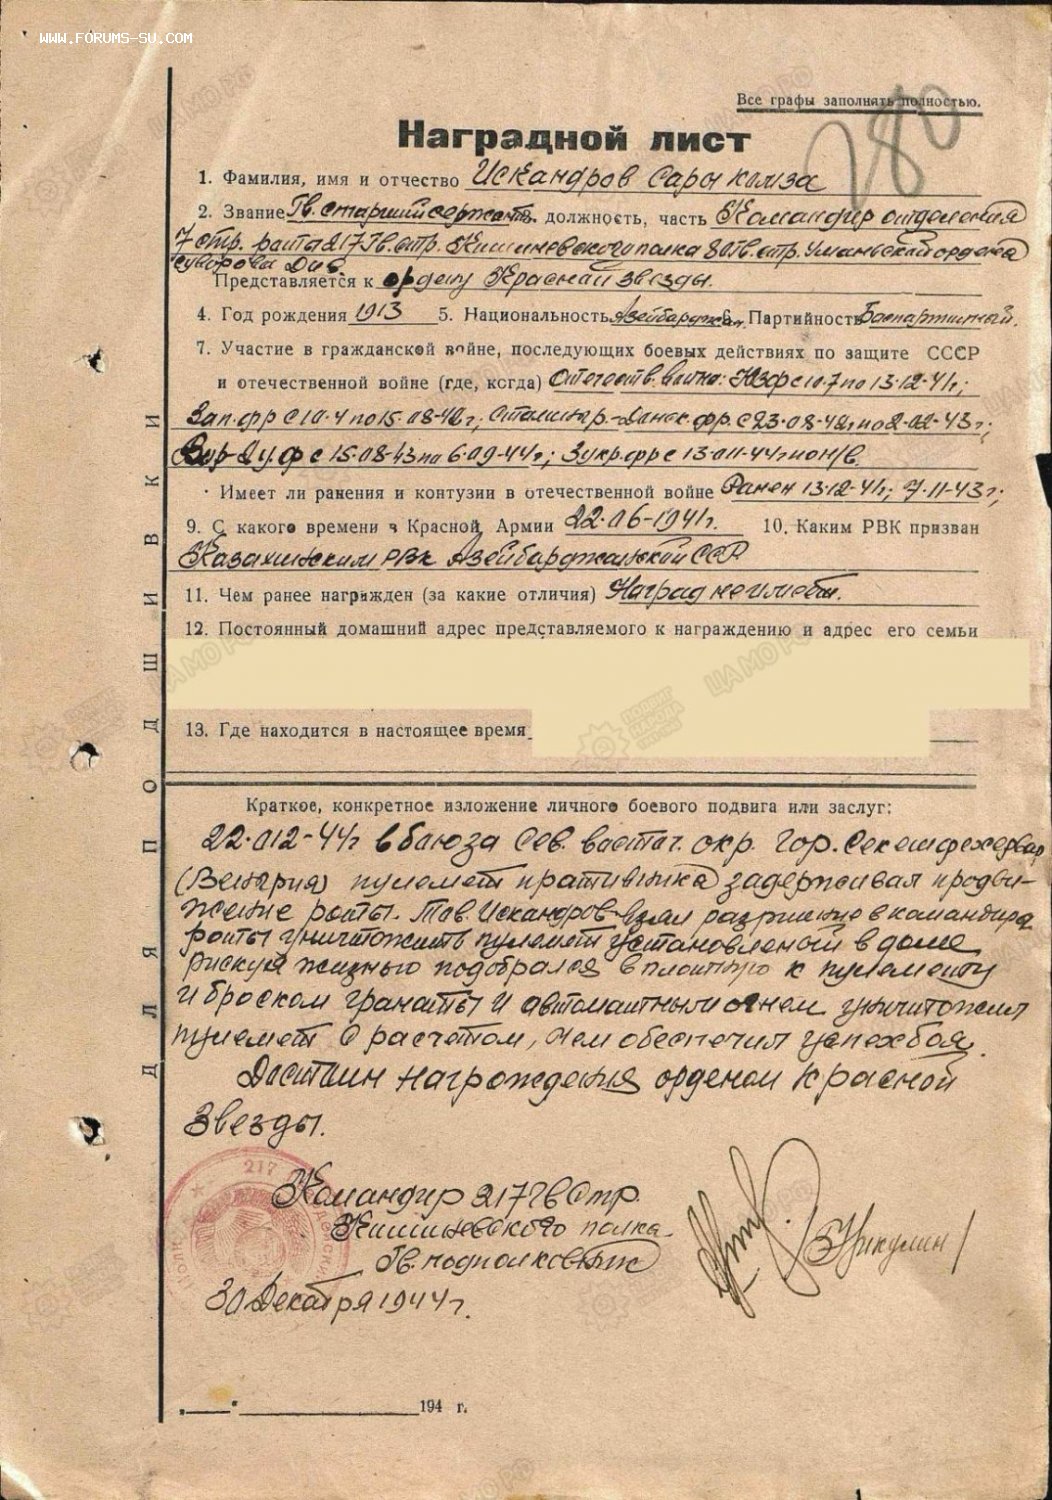 WWW.FORUMS-SU.COM
Все графы заполнять полностью.
280
Наградной лист
1. Фамилия, имя и отчество Искандров Сары
2. Звание Гв. старший сержант. должность, часть Командир отделения
7 стр. роты 217 Гв. стр. Кишиневского полка 80 Гв. стр. Уманьской ордена
Суворова Див.
Представляется к ордену Красной звезды.
4. Год рождения 1913 5. Национальность Азейбарджан. 6. Партийность Беспартийный.
7. Участие в гражданской войне, последующих боевых действиях по защите СССР
и отечественной войне (где, когда) Отечеств. война: ЮЗФ с 10.7 по 13-12-41г;
Зап. фр с 10.4 по 15-08-42г; Сталингр.-Донск. фр. с 23-08-42г по 2-02-43г;
2 У. ф с 15-08-43 по 6-09-44г; 3 Укр. фр с 13-011-44г по н/в.
Имеет ли ранения и контузии в отечественной войне Ранен 13-12-41г; 7-11-43г;
9. С какого времени в Красной Армии 22-06-1941г. 10. Каким РВК призван
Казахинским РВК Азейбарджанской ССР
11. Чем ранее награжден (за какие отличия) Наград не имеет.
12. Постоянный домашний адрес представляемого к награждению и адрес его семьи
13. Где находится в настоящее время
Краткое, конкретное изложение личного боевого подвига или заслуг:
22-012-44г в боюза Сев. восточ. окр. гор. Секешфехервар
(Венгрия) пулемет противника задерживал продви-
жение роты. Тов. Искандров взял разришие в командира
роты уничтожить пулемет установленый в доме
рискуя жизнью подобрался вплотную к пулемету
и броском гранаты и автоматным огнем уничтожил
пулемет с расчетом, чем обеспечил успех боя.
Достоин награждения орденом Красной
Звезды.
Командир 217 Гв Стр.
Кишиневского полка
Гв. подполковник
/Никулин/
30 Декабря 1944г.
„___" ____________194 г.
ДЛЯ ПОДШИВКИ
217
ЦАМО РФ